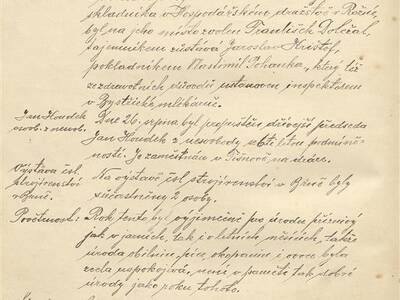 skladníka v Hospodářském družstvu v Rožné,
byl na jeho místo zvolen František Doležal,
tajemníkem zůstává Jaroslav Krištof,
pokladníkem Vlastimil Pohanka, který též
ze zdravotních důvodů ustanoven inspektorem
v Bystřické mlékárně.
Jan Houdek
osob. z nesvob.
Dne 26. srpna byl propuštěn dřívější předseda
Jan Houdek z nesvobody s 6ti letou podmíne-
ností. Je zaměstnán v Tišnově na dráze.
Výstava čsl.
strojírenství
v Brně.
Na výstavě čsl. strojírenství v Brně byly
zúčastněny 2 osoby.
Povětrnost:
Rok tento byl výjimečně pro úrodu příznivý
jak v jarních, tak i v letních měsících, takže
úroda obilnin, píce, okopanin i ovoce byla
zcela uspokojivá, není v paměti tak dobré
úrody jako roku tohoto.